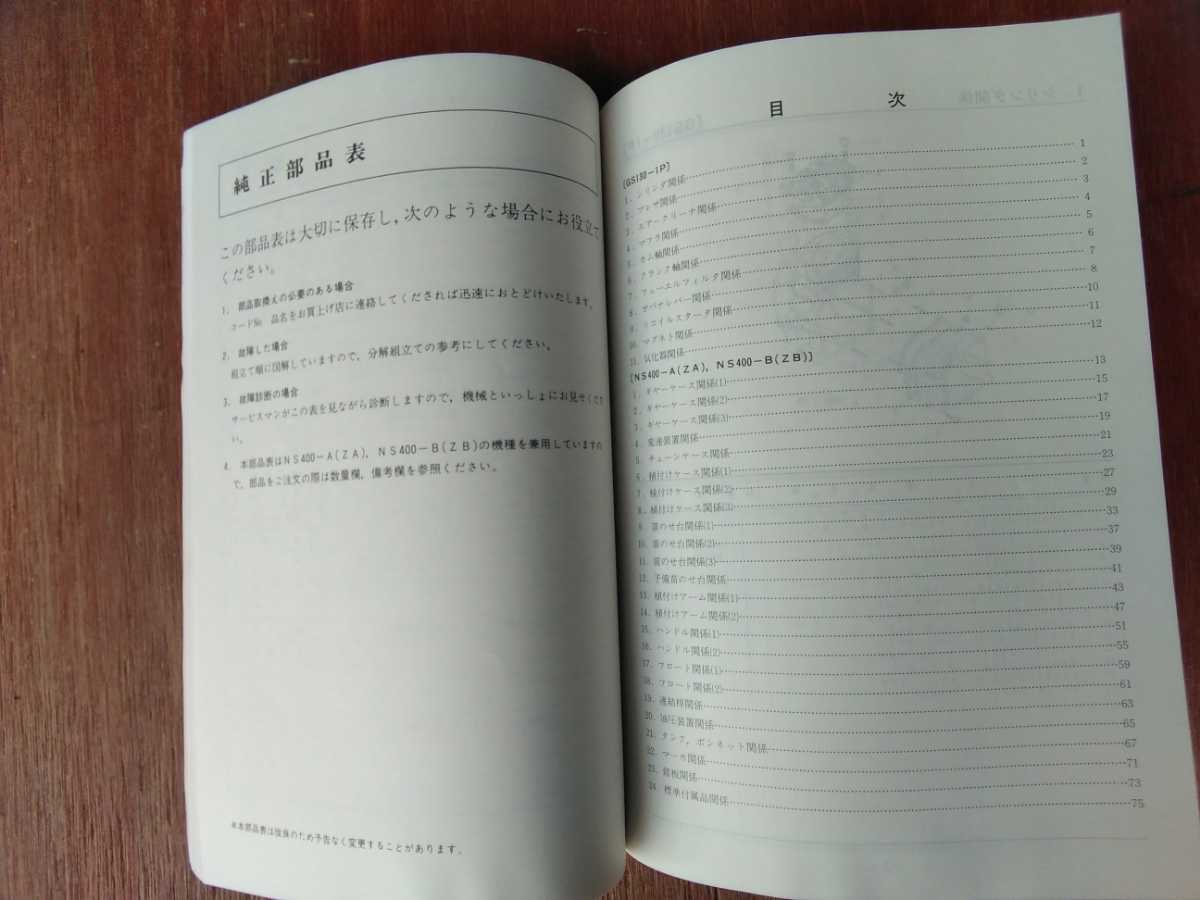 純正部品表
この部品表は大切に保存し,次のような場合にお役立て
ください。
1. 部品取換えの必要のある場合
コード№ 品名をお買上げ店に連絡してくだされば迅速におとどけいたします。
2. 故障した場合
組立て順に図解していますので,分解組立ての参考にしてください。
3. 故障診断の場合
サービスマンがこの表を見ながら診断しますので,機械といっしょにお見せくださ
い。
4. 本部品表はNS400-A(ZA),NS400-B(ZB)の機種を兼用していますの
で,部品をご注文の際は数量欄,備考欄を参照ください。
※本部品表は改良のため予告なく変更することがあります。
目次
[GS130-1P]
1.シリンダ関係 1
2.フレマ関係 2
3.エアークリーナ関係 3
4.マフラ関係 4
5.カム軸関係 5
6.クランク軸関係 6
7.フューエルフィルタ関係 7
8.ガバナレバー関係 8
9.リコイルスタータ関係 10
10.マグネト関係 11
11.気化器関係 12
[NS400-A(ZA),NS400-B(ZB)]
1.ギヤーケース関係(1) 13
2.ギヤーケース関係(2) 15
3.ギヤーケース関係(3) 17
4.変速装置関係 19
5.チェーンケース関係 21
6.植付けケース関係(1) 23
7.植付けケース関係(2) 27
8.植付けケース関係(3) 29
9.苗のせ台関係(1) 33
10.苗のせ台関係(2) 37
11.苗のせ台関係(3) 39
12.予備苗のせ台関係 41
13.植付けアーム関係(1) 43
14.植付けアーム関係(2) 47
15.ハンドル関係(1) 51
16.ハンドル関係(2) 55
17.フロート関係(1) 59
18.フロート関係(2) 61
19.連結桿関係 63
20.油圧装置関係 65
21.タンク,ボンネット関係 67
22.マーカ関係 71
23.銘板関係 73
24 標準付属品関係 75